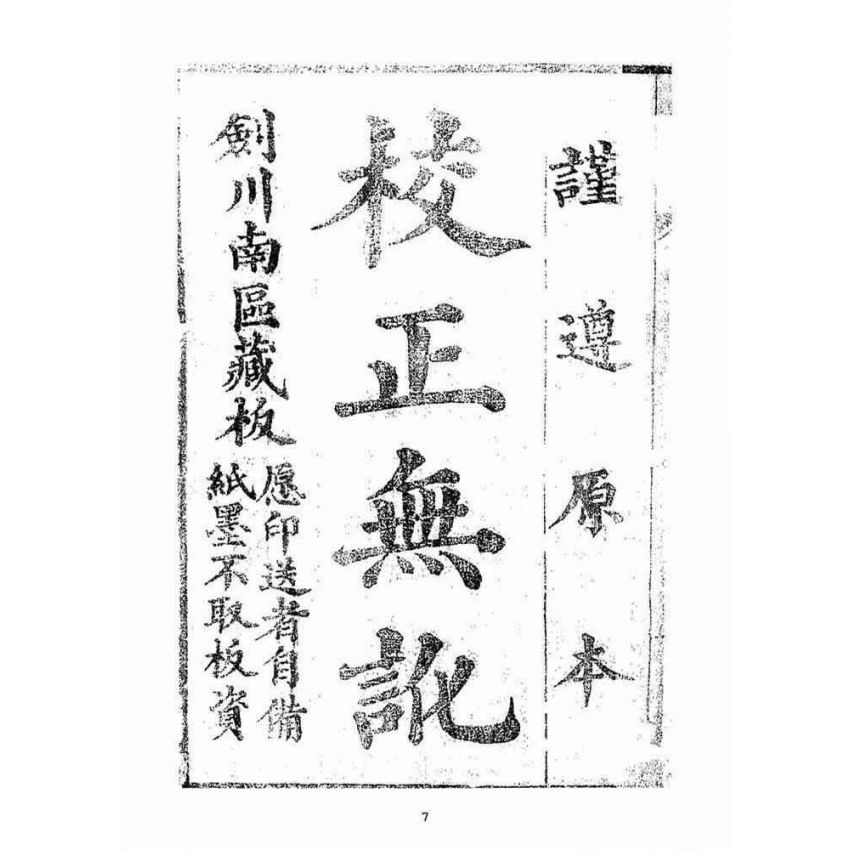 謹遵原本
校正無訛
劍川南區藏板
愿印送者自備
紙墨不取板資
7